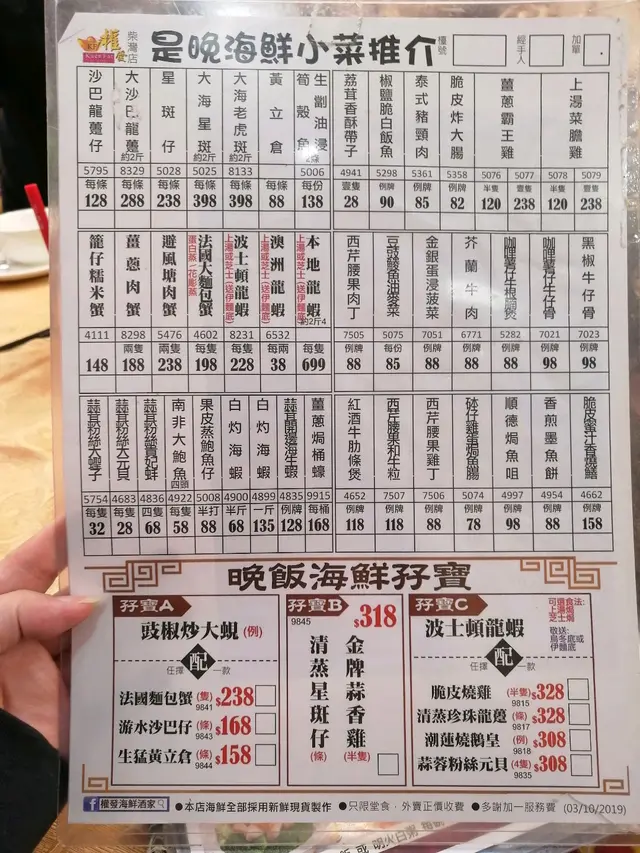 權發
柴灣店
是晚海鮮小菜推介
檯號
經手人
加單
沙巴龍躉仔 5795 每條 128
大沙巴龍躉 約2斤 8329 每條 288
星斑仔 5028 每條 238
大海星斑 約2斤 5025 每條 398
大海老虎斑 約2斤 8133 每條 398
黃立倉 每條 88
生劏油浸筍殼魚 5006 每份 138
荔茸香酥帶子 4941 壹隻 28
椒鹽脆白飯魚 5298 例牌 90
泰式豬頸肉 5361 例牌 85
脆皮炸大腸 5358 例牌 82
薑蔥霸王雞 5076 半隻 120 5077 壹隻 238
上湯菜膽雞 5078 半隻 120 5079 壹隻 238
籠仔糯米蟹 4111 148
薑蔥肉蟹 8298 兩隻 188
避風塘肉蟹 5476 兩隻 238
法國大麵包蟹 蛋白蒸/花彫蒸 4602 每隻 198
波士頓龍蝦 上湯或芝士(送伊麵底) 8231 每隻 228
澳洲龍蝦 上湯或芝士(送伊麵底) 6532 每兩 38
本地龍蝦 上湯或芝士(送伊麵底) 每隻 699
西芹腰果肉丁 7505 例牌 88
豆豉鯪魚油麥菜 5075 每份 85
金銀蛋浸菠菜 7051 例牌 88
芥蘭牛肉 6771 例牌 88
咖喱薯仔牛根腩煲 5282 例牌 88
咖喱薯仔牛仔骨 7021 例牌 98
黑椒牛仔骨 7023 例牌 98
蒜茸粉絲大蟶子 5754 每隻 32
蒜茸粉絲大元貝 4683 每隻 28
蒜茸粉絲貴妃蚌 4836 四隻 68
南非大鮑魚 四頭 4922 每隻 58
果皮蒸鮑魚仔 5008 半打 88
白灼海蝦 4900 半斤 68
白灼海蝦 4899 一斤 135
蒜茸開邊海生蝦 4835 例牌 128
薑蔥焗桶蠔 9915 每桶 168
紅酒牛肋條煲 4652 例牌 118
西芹腰果和牛粒 7507 例牌 118
西芹腰果雞丁 7506 例牌 88
砵仔雞蛋焗魚腸 5074 例牌 78
順德焗魚咀 4997 例牌 98
香煎墨魚餅 4954 例牌 88
脆皮蜜汁香燒鱔 4662 例牌 158
晚飯海鮮孖寶
孖寶A
豉椒炒大蜆 (例)
任擇 配 一款
法國麵包蟹 (隻) 9841 $238
游水沙巴仔 (條) 9843 $168
生猛黃立倉 (條) 9844 $158
孖寶B
9845 $318
金牌蒜香雞 (半隻)
清蒸星斑仔 (條)
孖寶C
波士頓龍蝦
可選食法:
上湯焗
芝士焗
敬送:
烏冬底或
伊麵底
任擇 配 一款
脆皮燒雞 (半隻) 9815 $328
清蒸珍珠龍躉 (條) 9817 $328
潮蓮燒鵝皇 (例) 9818 $308
蒜蓉粉絲元貝 (4隻) 9835 $308
權發海鮮酒家
●本店海鮮全部採用新鮮現貨製作 ●只限堂食，外賣正價收費 ●多謝加一服務費 (03/10/2019)